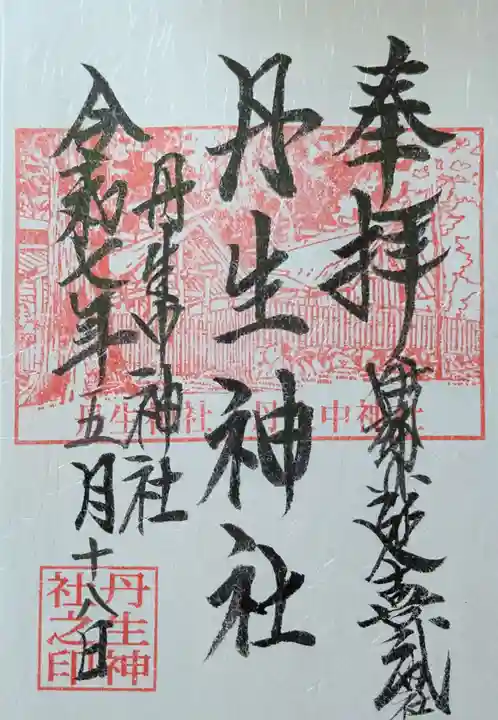 奉拝
丹生神社
丹生中神社
令和七年五月十八日
丹生神社 丹生中神社
丹生神
社之印